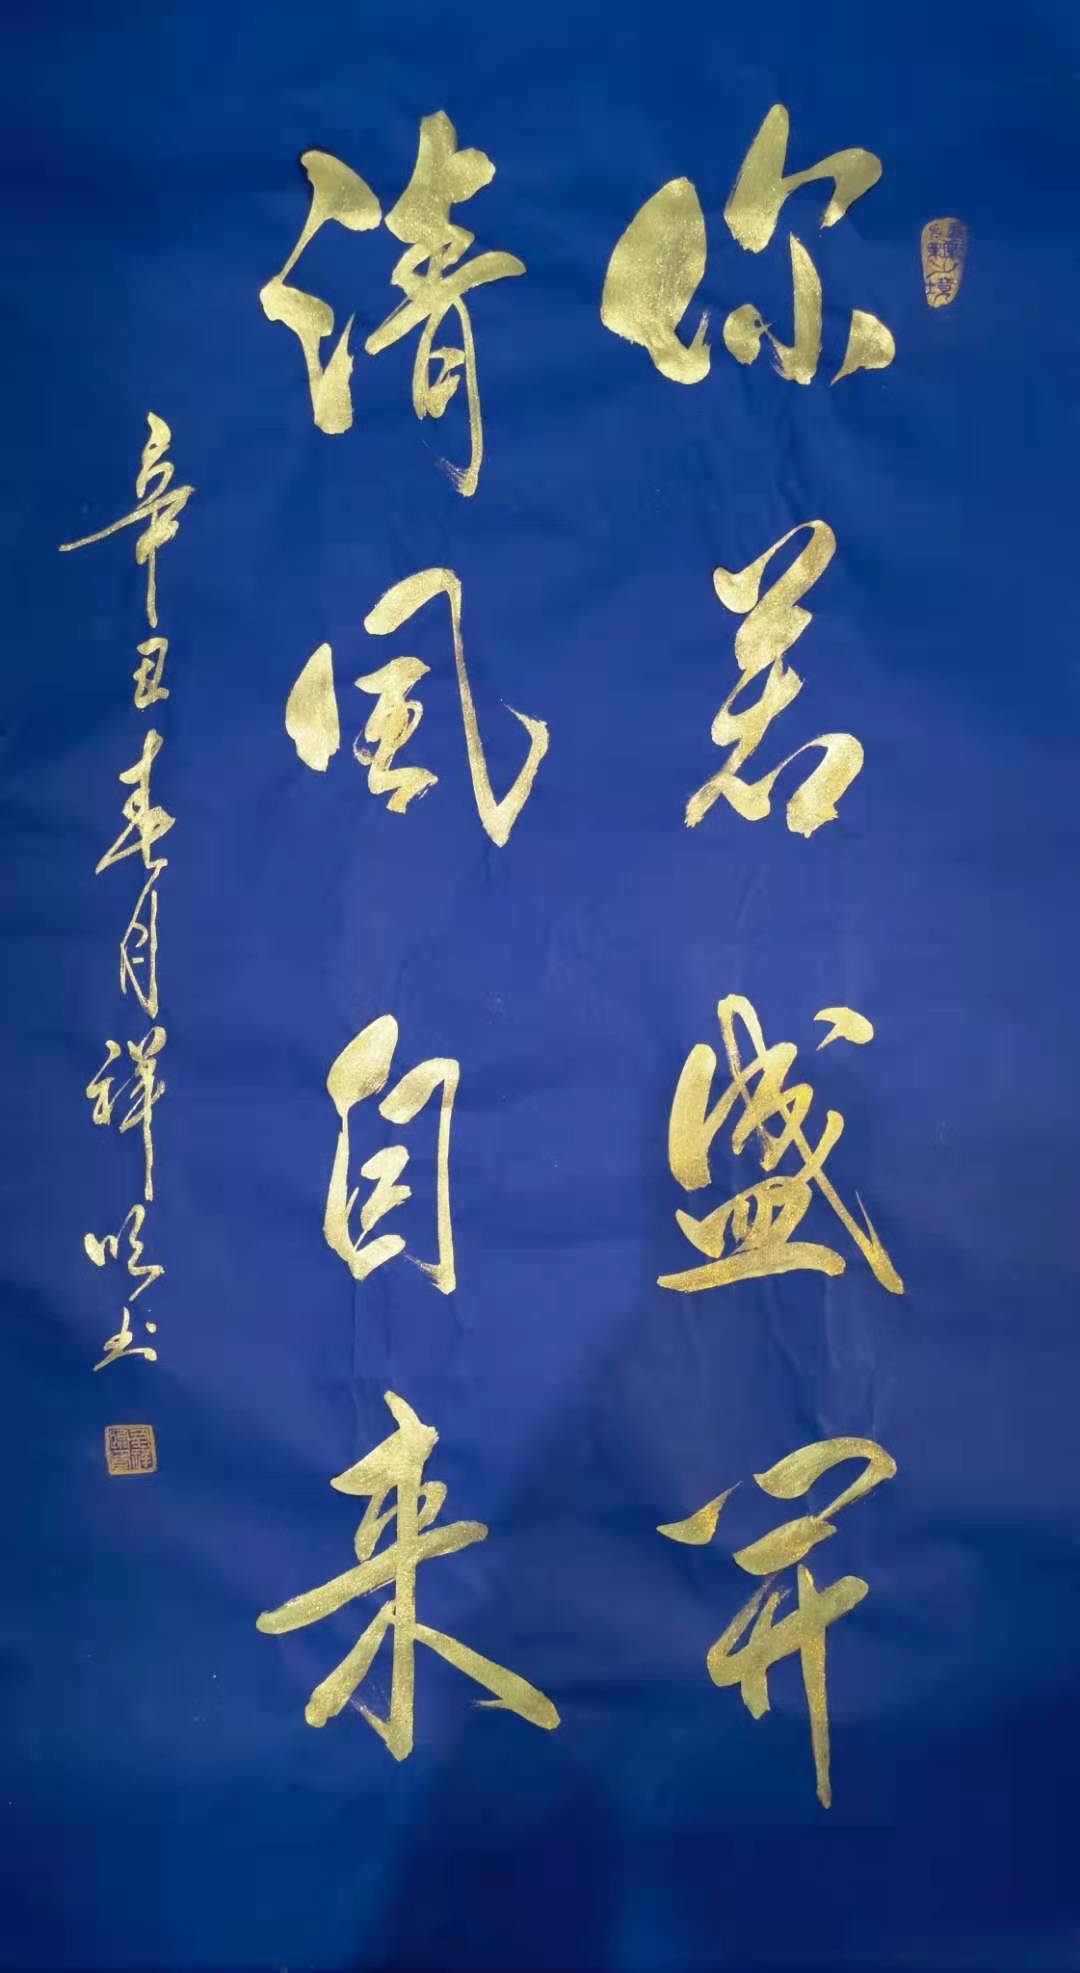 你若盛开
清风自来
辛丑春月祥明书